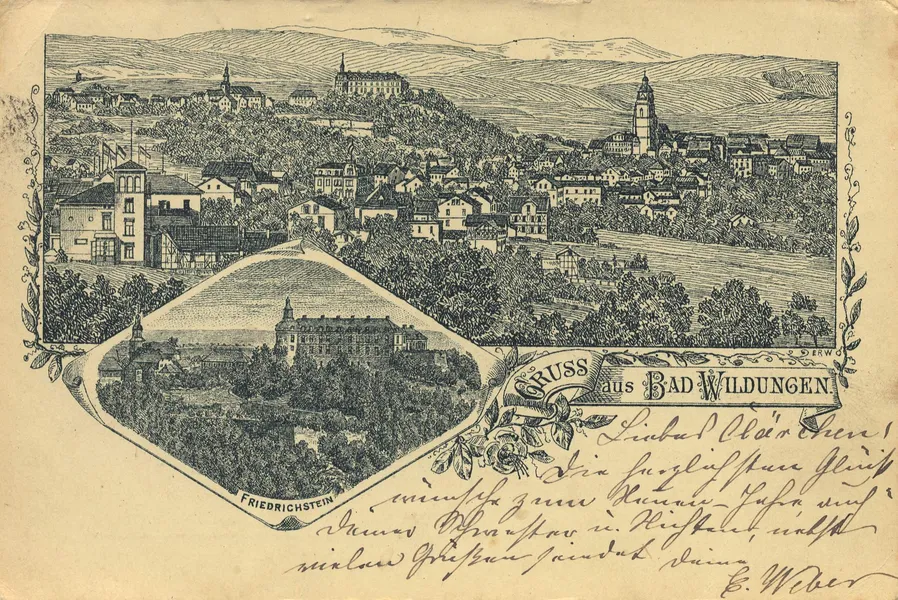 ERW
GRUSS aus BAD WILDUNGEN.
FRIEDRICHSTEIN
Liebes Clärchen!
Die herzlichsten Glück-
wünsche zum Neuen-Jahre auch
Deiner Schwester u. Nichten, nebst
vielen Grüßen sendet Deine
E. Weber